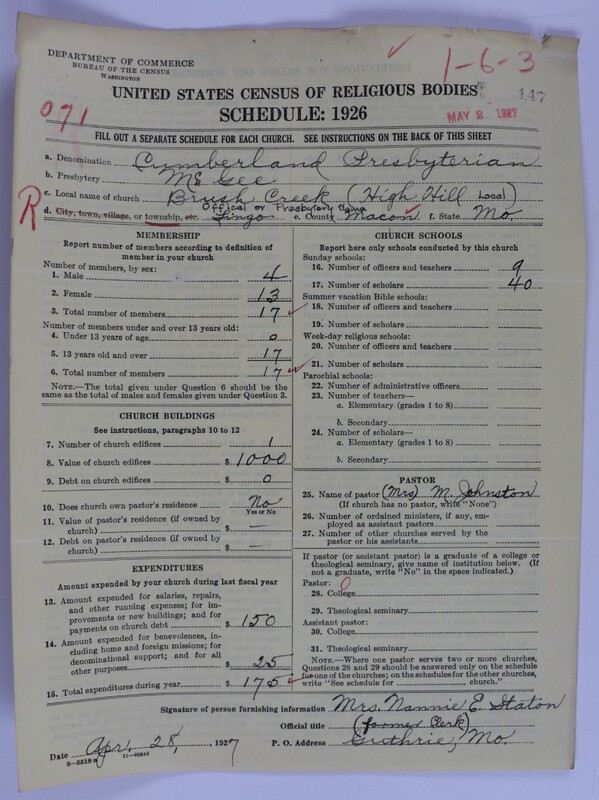 DEPARTMENT OF COMMERCE
BUREAU OF THE CENSUS
WASHINGTON
1-6-3
147
UNITED STATES CENSUS OF RELIGIOUS BODIES
SCHEDULE: 1926
MAY 2 1927
071
FILL OUT A SEPARATE SCHEDULE FOR EACH CHURCH. SEE INSTRUCTIONS ON THE BACK OF THIS SHEET
a. Denomination Cumberland Presbyterian
b. Presbytery McGee
c. Local name of church Brush Creek (High Hill Local)
Offical or Presbytery Name
R
d. City, town, village, or township, etc. Lingo e. County Macon f. State Mo.
MEMBERSHIP
Report number of members according to definition of member in your church
Number of members, by sex:
1. Male 4
2. Female 13
3. Total number of members 17
Number of members under and over 13 years old:
4. Under 13 years of age 0
5. 13 years old and over 17
6. Total number of members 17
NOTE.—The total given under Question 6 should be
same as the total of males and females given under Question 3.
CHURCH BUILDINGS
See instructions, paragraphs 10 to 12
7. Number of church edifices 1
8. Value of church edifices $ 1000
9. Debt on church edifices $ 0
10. Does church own pastor's residence? No
Yes or No
11. Value of pastor's residence (if owned by
church) $ —
12. Debt on pastor's residence (if owned by
church) $ —
EXPENDITURES
Amount expended by your church during last fiscal year
13. Amount expended for salaries, repairs,
and other running expenses; for im-
provements or new buildings; and for
payments on church debt $ 150
14. Amount expended for benevolences, in-
cluding home and foreign missions; for
denominational support; and for all
other purposes $ 25
15. Total expenditures during year $ 175
CHURCH SCHOOLS
Report here only schools conducted by this church
Sunday schools:
16. Number of officers and teachers 9
17. Number of scholars 40
Summer vacation Bible schools:
18. Number of officers and teachers
19. Number of scholars
Week-day religious schools:
20. Number of officers and teachers
21. Number of scholars
Parochial schools:
22. Number of administrative officers
23. Number of teachers—
a. Elementary (grades 1 to 8)
b. Secondary
24. Number of scholars—
a. Elementary (grades 1 to 8)
b. Secondary
PASTOR
25. Name of pastor (Mrs) M. Johnston
(If church has no pastor, write "None")
26. Number of ordained ministers, if any, em-
ployed as assistant pastors
27. Number of other churches served by the
pastor or his assistants
If pastor (or assistant pastor) is a graduate of a college or
theological seminary, give name of institution below. (If
not a graduate, write "No" in the space indicated.)
Pastor: 0
28. College
29. Theological seminary
Assistant pastor:
30. College
31. Theological seminary
NOTE.—Where one pastor serves two or more churches,
Questions 28 and 29 should be answered only on the schedule
for one of the churches; on the schedules for the other churches,
write "See schedule for church."
Signature of person furnishing information Mrs. Nannie E. Staton
Official title (former Clerk)
Date Apr. 28, 1927 P. O. Address Guthrie, Mo.